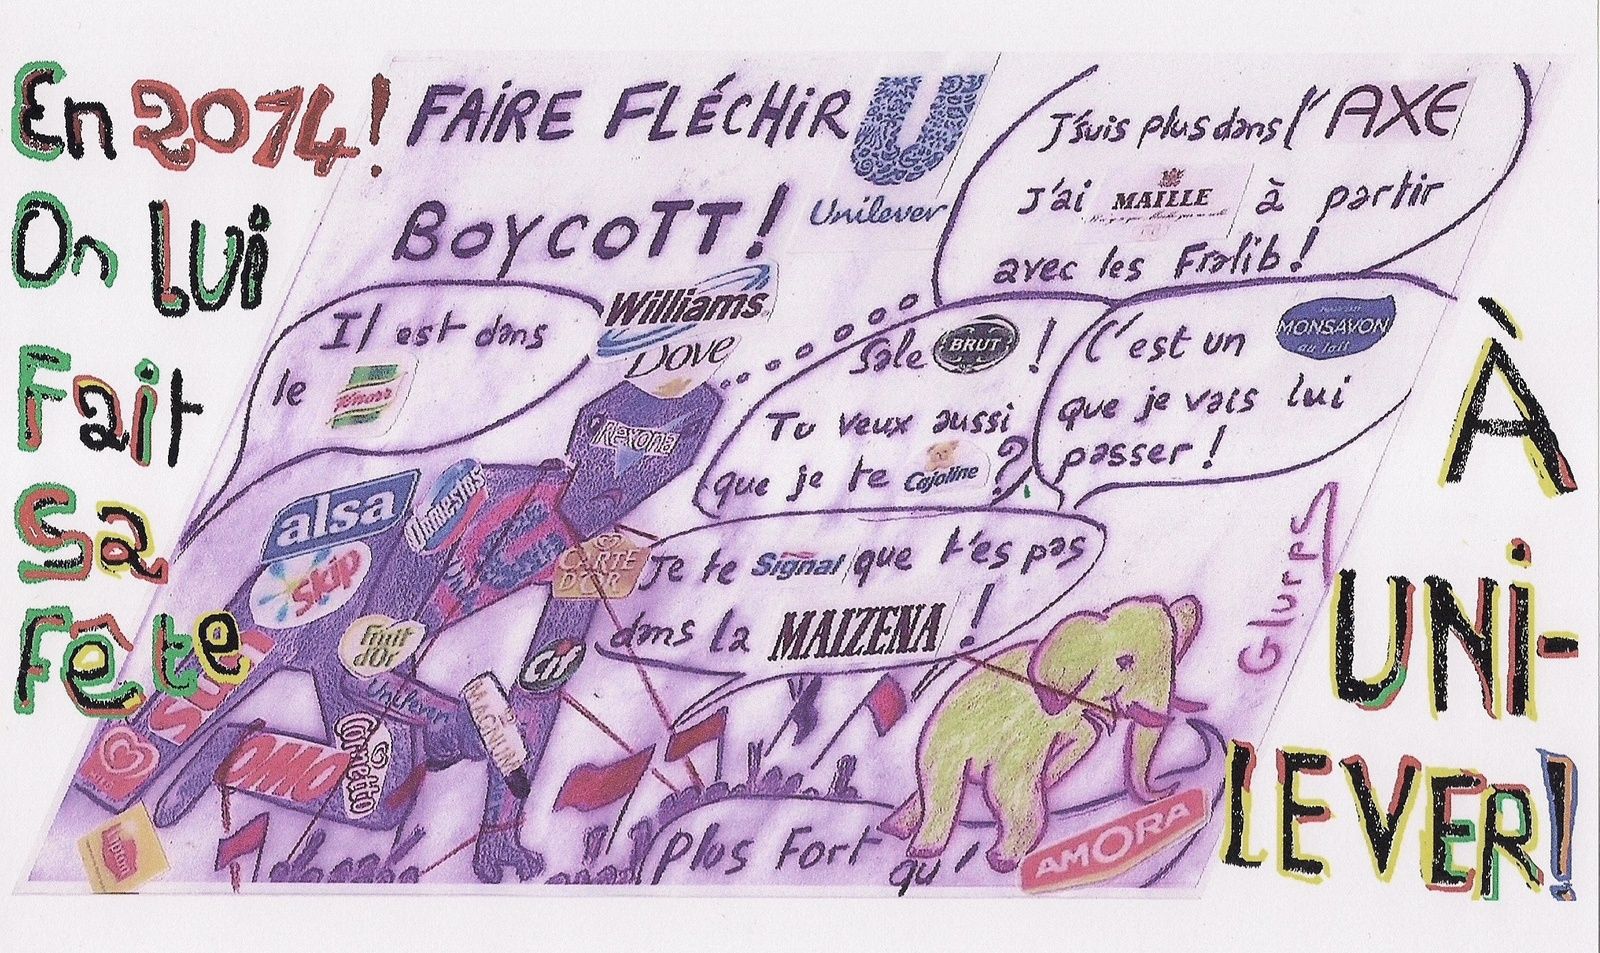 En 2014!
On LUI
Fait
Sa
Fête
À
UNI-
LEVER!
FAIRE FLÉCHIR U
Unilever
BOYCOTT!
J'suis plus dans l'AXE
J'ai MAILLE à partir
avec les Fralib!
Il est dans
le Knorr
Williams
Dove
Rexona
Sale BRUT !
Tu veux aussi
que je te Cajoline ?
C'est un MONSAVON
au lait
que je vais lui
passer!
Je te Signal que t'es pas
dans la MAIZENA !
alsa
Domestos
skip
CARTE
D'OR
fruit
d'Or
Unilever
MAGNUM
cif
SUN
OMO
Cornetto
Lipton
Plus Fort
qu'
AMORA
Glurps